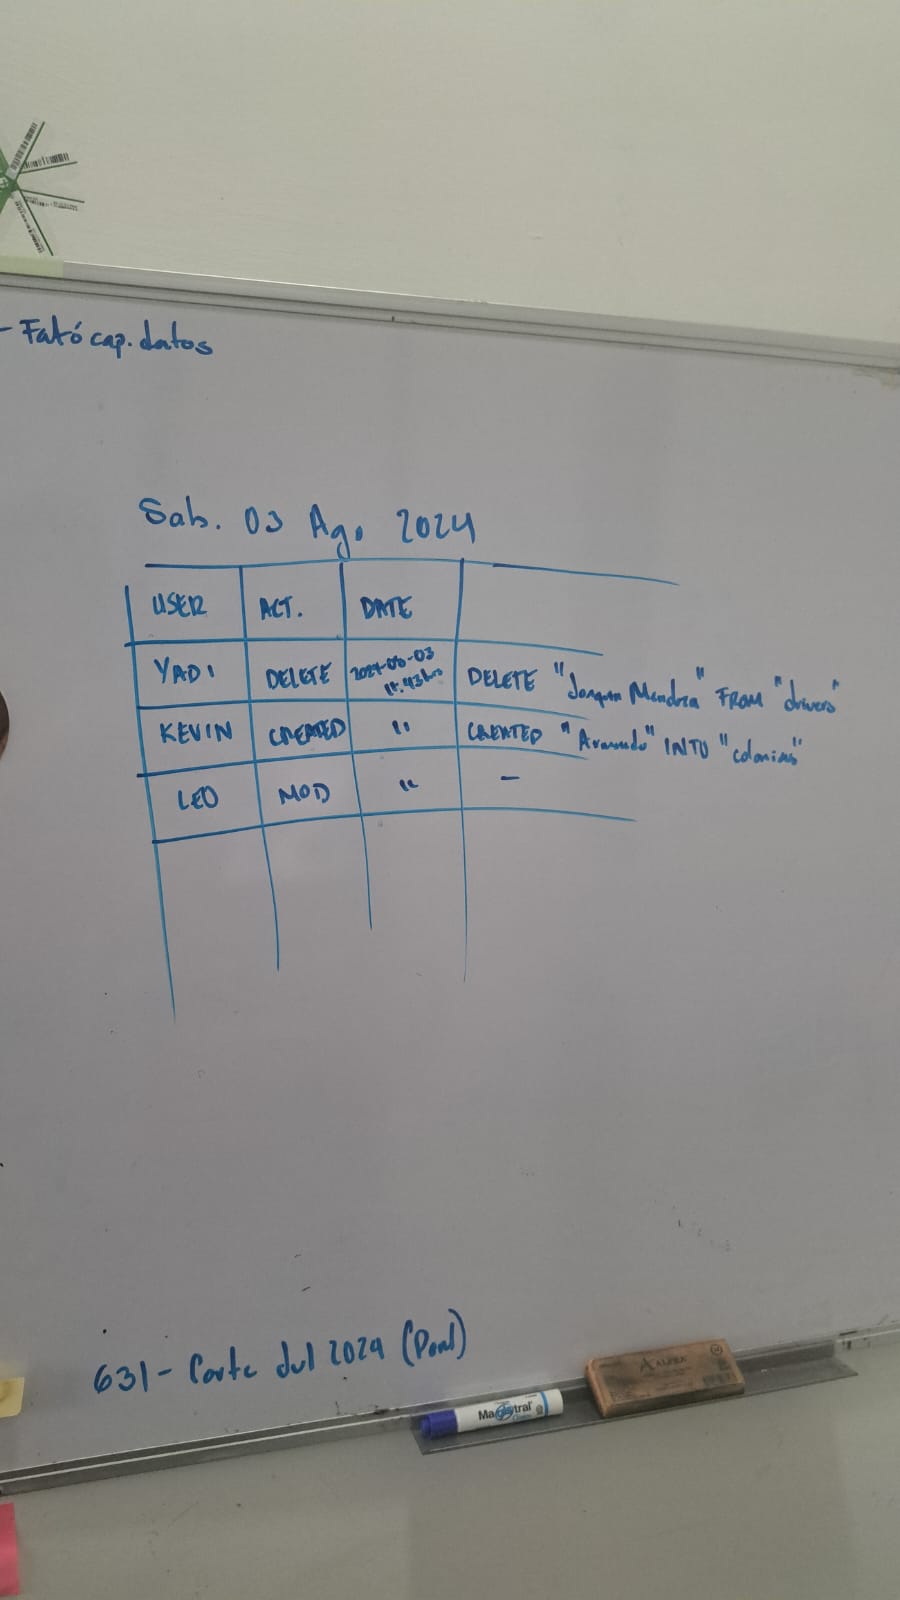 - Fató cap. datos
Sab. 03 Ago 2024
USER ACT. DATE
YADI DELETE 2024-08-03 DELETE "Joaquin Mendoza" FROM "drivers"
:43hrs
KEVIN CREATED " CREATED INTO "colonias"
LEO MOD " -
631- Corte del 2024
Magistral
ALFRA